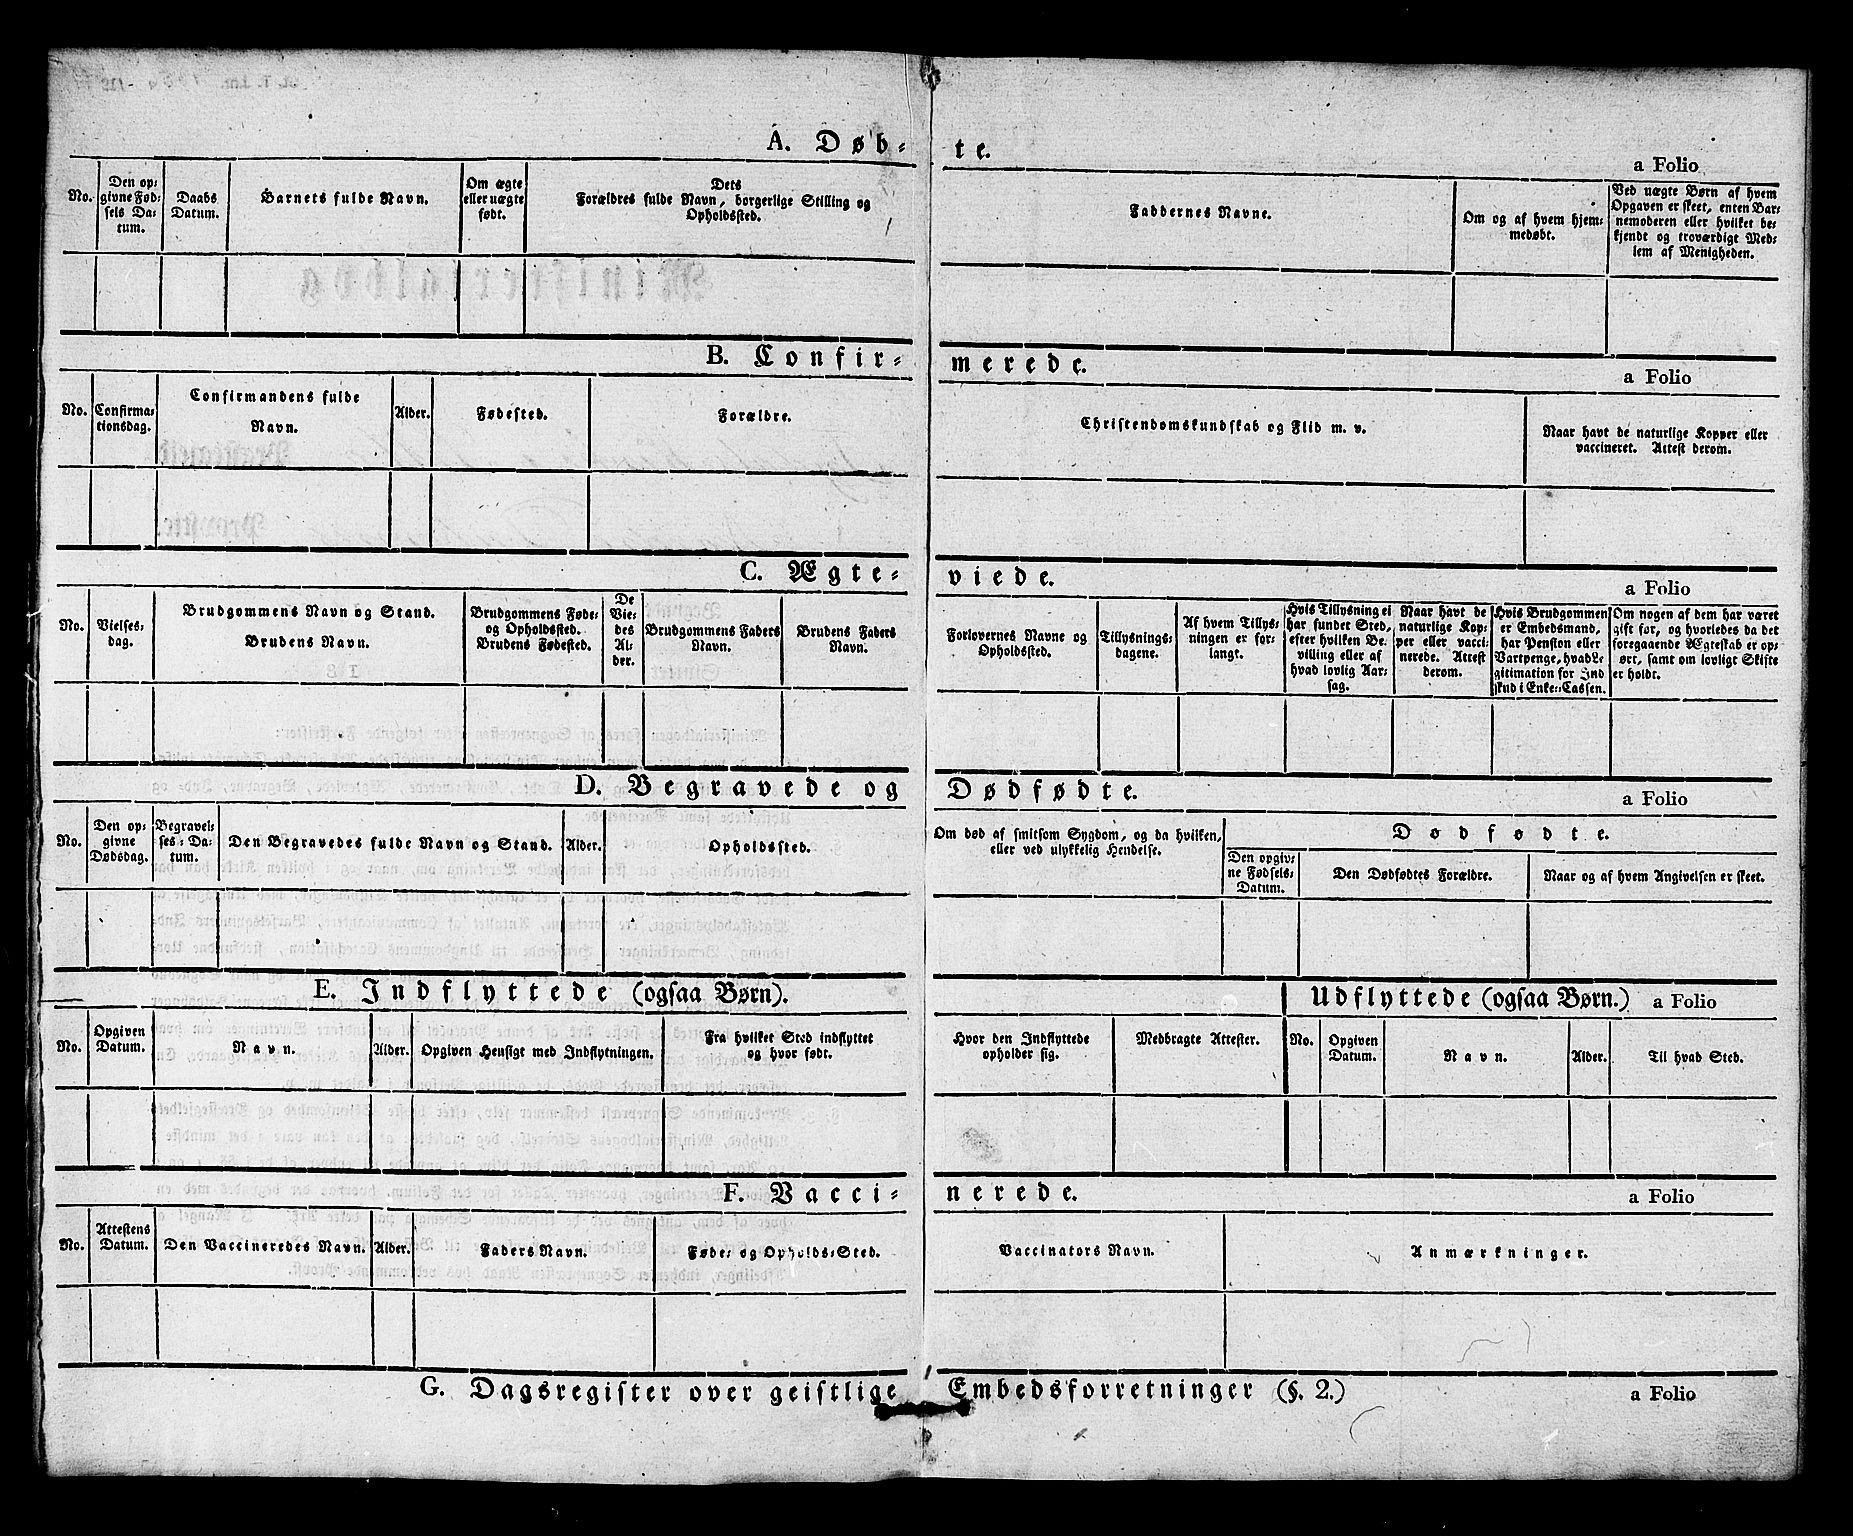 A. Døb-te. a Folio
No.
Den op-
givne Fød-
sels Da-
tum.
Daabs
Datum.
Barnets fulde Navn.
Om ægte
eller uægte
født.
Dets
Forældres fulde Navn, borgerlige Stilling og
Opholdssted.
Faddernes Navne.
Om og af hvem hjem-
medøbt.
Ved uægte Børn af hvem
Opgaven er skeet, enten Bar-
nemoderen eller hvilket be-
kjendt og troværdigt Med-
lem af Menigheden.
B. Confir-merede. a Folio
No.
Confirma-
tionsdag.
Confirmandens fulde
Navn.
Alder.
Fødested.
Forældre.
Christendomskundskab og Flid m. v.
Naar havt de naturlige Kopper eller
vaccineret. Attest derom.
C. Ægte-viede. a Folio
No.
Vielses-
dag.
Brudgommens Navn og Stand.
Brudens Navn.
Brudgommens Føde-
og Opholdssted.
Brudens Fødested.
De
Vie-
des
Al-
der.
Brudgommens Faders
Navn.
Brudens Faders
Navn.
Forlovernes Navne og
Opholdssted.
Tillysnings-
dagene.
Af hvem Tillys-
ningen er for-
langt.
Hvis Tillysning ei
har fundet Sted,
efter hvilken Be-
villing eller af
hvad lovlig Aar-
sag.
Naar havt de
naturlige Kop-
per eller vacci-
nerede. Attest
derom.
Hvis Brudgommen
er Embedsmand,
har Pension eller
Vartpenge, hvad Le-
gitimation for Ind
skud i Enke-Cassen.
Om nogen af dem har været
gift før, og hvorledes da det
foregaaende Ægteskab er op-
ført, samt om lovligt Skifte
er holdt.
D. Begravede og Dødfødte. a Folio
No.
Den op-
givne
Dødsdag.
Begravel-
ses-Da-
tum.
Den Begravedes fulde Navn og Stand.
Alder.
Opholdssted.
Om død af smitsom Sygdom, og da hvilken,
eller ved ulykkelig Hendelse.
Dødfødte.
Den opgiv-
ne Fødsels-
Datum.
Den Dødfødtes Forældre.
Naar og af hvem Angivelsen er skeet.
E. Indflyttede (ogsaa Børn).
Udflyttede (ogsaa Børn.) a Folio
No.
Opgiven
Datum.
Navn.
Alder.
Opgiven Hensigt med Indflytningen.
Fra hvilket Sted indflyttet
og hvor født.
Hvor den Indflyttede
opholder sig.
Medbragte Attester.
No.
Opgiven
Datum.
Navn.
Alder.
Til hvad Sted.
F. Vacci-nerede. a Folio
No.
Attestens
Datum.
Den Vaccineredes Navn.
Alder.
Faders Navn.
Føde- og Opholds-Sted.
Vaccinators Navn.
Anmærkninger.
G. Dagsregister over geistlige Embedsforretninger (§. 2.) a Folio